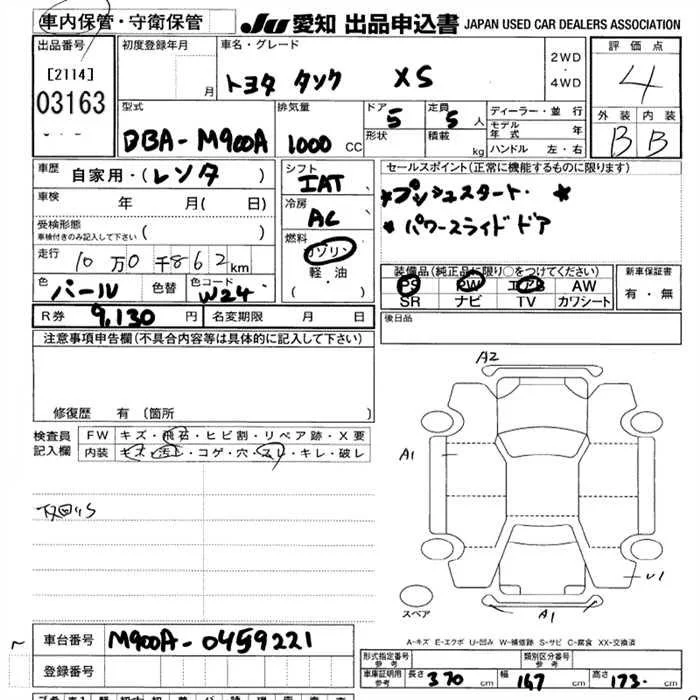 車内保管・守衛保管 JU 愛知 出品申込書 JAPAN USED CAR DEALERS ASSOCIATION
出品番号 [2114] 03163
初度登録年月 月
車名・グレード トヨタ タンク XS
2WD・4WD
評価点 4
外装 内装
B B
型式 DBA-M900A
排気量 1000 CC
ドア 5 形状
定員 5 人 積載 kg
ディーラー・並行
モデル年式 年
ハンドル 左・右
車歴 自家用・(レンタ)
車検 年 月(日)
受検形態 車検付きのみ記入して下さい ( )
走行 10万0千862km
色 パール 色替 色コード W24
シフト IAT
冷房 AC
燃料 ガソリン
軽・油
( ・ )
セールスポイント(正常に機能するものに限ります)
*プッシュスタート *
*パワースライドドア
装備品(純正品に限り○をつけてください)
PS PW エアB AW
SR ナビ TV カワシート
新車保証書
有・無
R券 9,130 円 名変期限 月 日
後日品
注意事項申告欄(不具合内容等は具体的に記入して下さい)
修復歴 有 〔箇所
検査員記入欄
FW キズ・飛石・ヒビ割・リペア跡・X要
内装 キズ・汚レ・コゲ・穴・スレ・キレ・破レ
A2
A1
U1
A1
スペア
A-キズ E-エクボ U-凹み W-補修跡 S-サビ C-腐食 XX-交換済
車台番号 M900A-0459221
登録番号
形式指定番号 参考
類別区分番号 参考
車庫証明用 参考 長さ 370 cm 幅 167 cm 高さ 173 cm